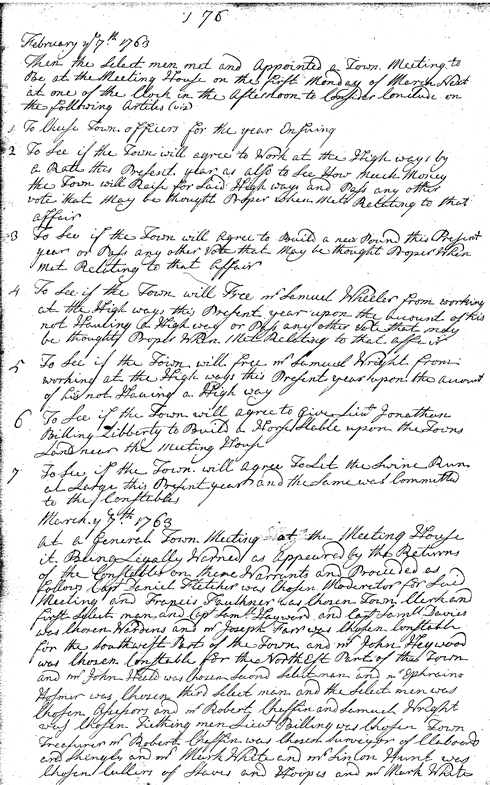 176
February ye 7th 1763
Then the Select men met and Appointed a Town Meeting to
Be at the Meeting House on the first Monday of March Next
at one of the Clock in the Afternoon to Consider Conclude on
the following Articles (viz)
1 To Chuse Town officers for the year Ensuing
2 To See if the Town will agree to Work at the High ways by
a Rate this Present year as also to See How much Money
the Town will Raise for Said High ways and Pass any other
vote that May be thought Proper When Mett Relating to that
affair
3 To See if the Town will Agree to Build a new Pound this Present
year or Pass any other Vote that May be thought Proper When
met Relating to that Affair
4 To See if the Town will Free mr Samuel Wheeler from working
at the High ways this Present year upon the account of his
not Haveing a High way or Pass any other vote that may
be thought Proper When Met Relating to that affair
5 To See if the Town will free mr Samuel Wright from
working at the High ways this Present year upon the account
of his not Haveing a High way
6 To See if the Town will agree to Give Liut Jonathan
Billing Libberty to Build a Horse Stable upon the Towns
Land near the Meeting House
7 To See if the Town will agree To Let the Swine Run
at Large this Present year and the Same was Committed
to the Constables
March ye 7th 1763
at a General Town Meeting at the Meeting House
it Being Legally Warned as Appeared by the Returns
of the Constables on there Warrants and Proceded as
follows Capt Daniel Fletcher was Chosen Moderator for Said
Meeting and Francis Faulkner was Chosen Town Clerk and
first Select man and Capt Saml Hayward and Capt Saml Davies
was Chosen Wardens and mr Joseph Farr was Chosen Constable
for the Southwest Part of the Town and mr John Heywood
was Chosen Constable for the North Est Part of this Town
and mr John Heald was Chosen Second Select man and mr Ephraim
Hosmer was Chosen third Select man and the Select men was
Chosen Assessors and mr Robert Chaffin and Samuel Wright
was Chosen Tithing men Liut Billing was Chosen Town
Treasurer mr Robert Chaffin was Chosen Surveyor of Claboards
and Shingls and mr Mark White and mr Simon Hunt was
Chosen Cullers of Staves and Hoops and mr Mark White